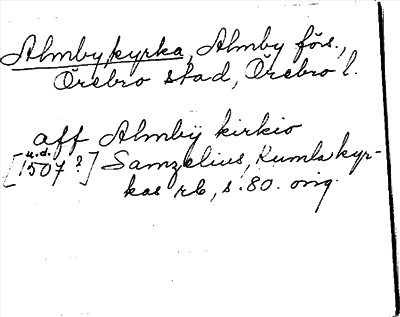 Almby kyrka, Almby förs.,
Örebro stad, Örebro l.
aff Almbÿ kirkio
u.d.
[1507?] Samzelius, Kumla kyr-
kas rb, s. 80. orig.